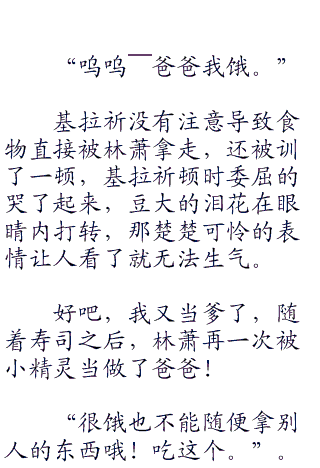 “呜呜￣爸爸我饿。”
基拉祈没有注意导致食
物直接被林萧拿走，还被训
了一顿，基拉祈顿时委屈的
哭了起来，豆大的泪花在眼
睛内打转，那楚楚可怜的表
情让人看了就无法生气。
好吧，我又当爹了，随
着寿司之后，林萧再一次被
小精灵当做了爸爸！
“很饿也不能随便拿别
人的东西哦！吃这个。”。